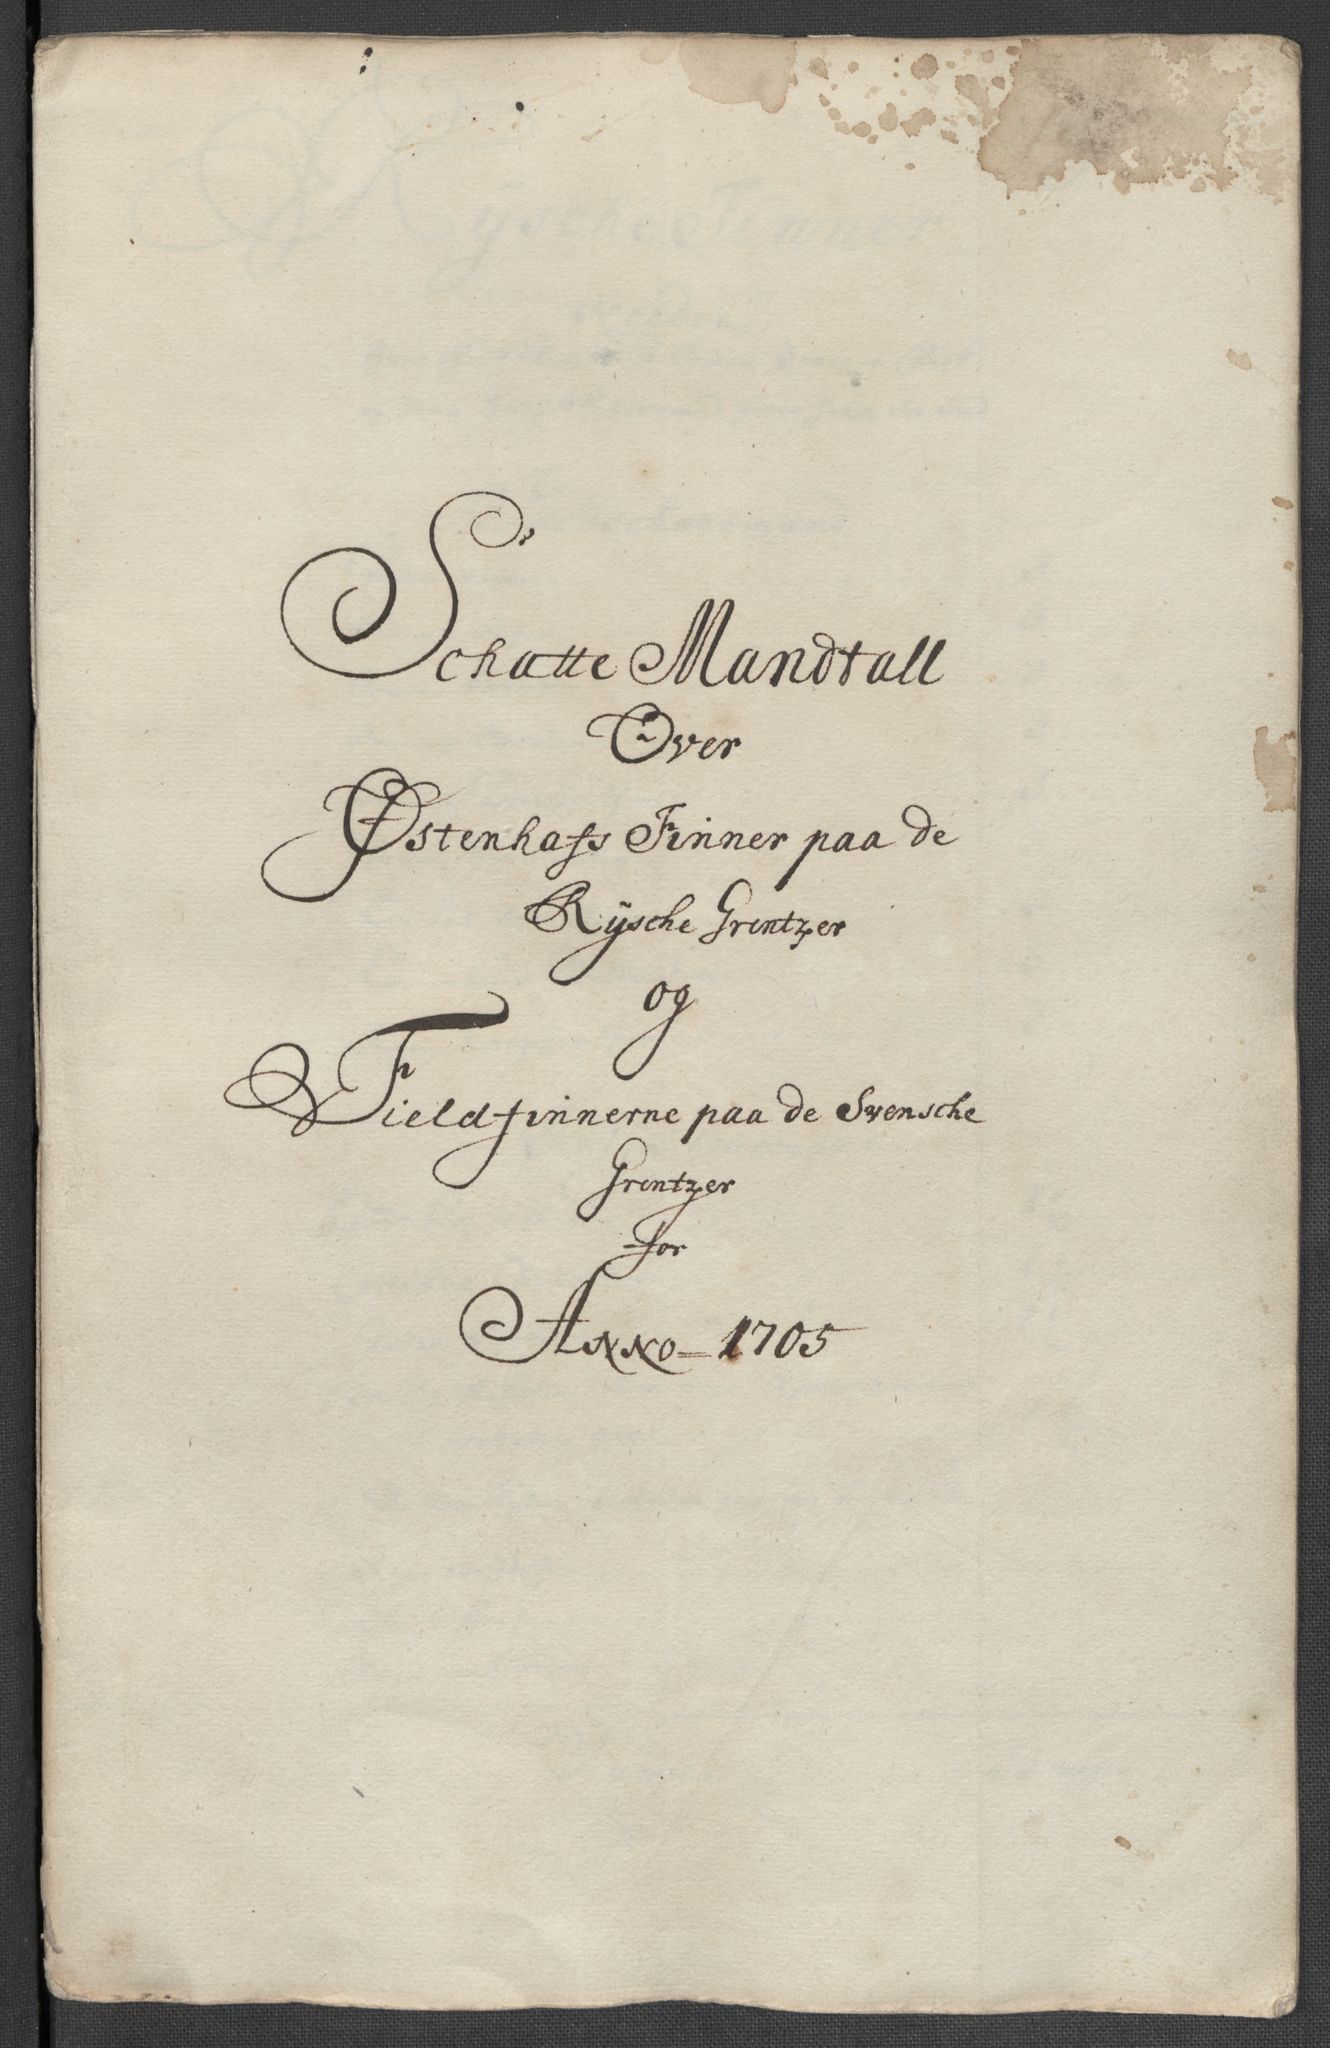 Schatte Mandtall
Over
Østenhafs Finner paa de
Rÿsche Grentzer
og
Fieldfinnerne paa de Svensche
Grentzer
for
Anno 1705